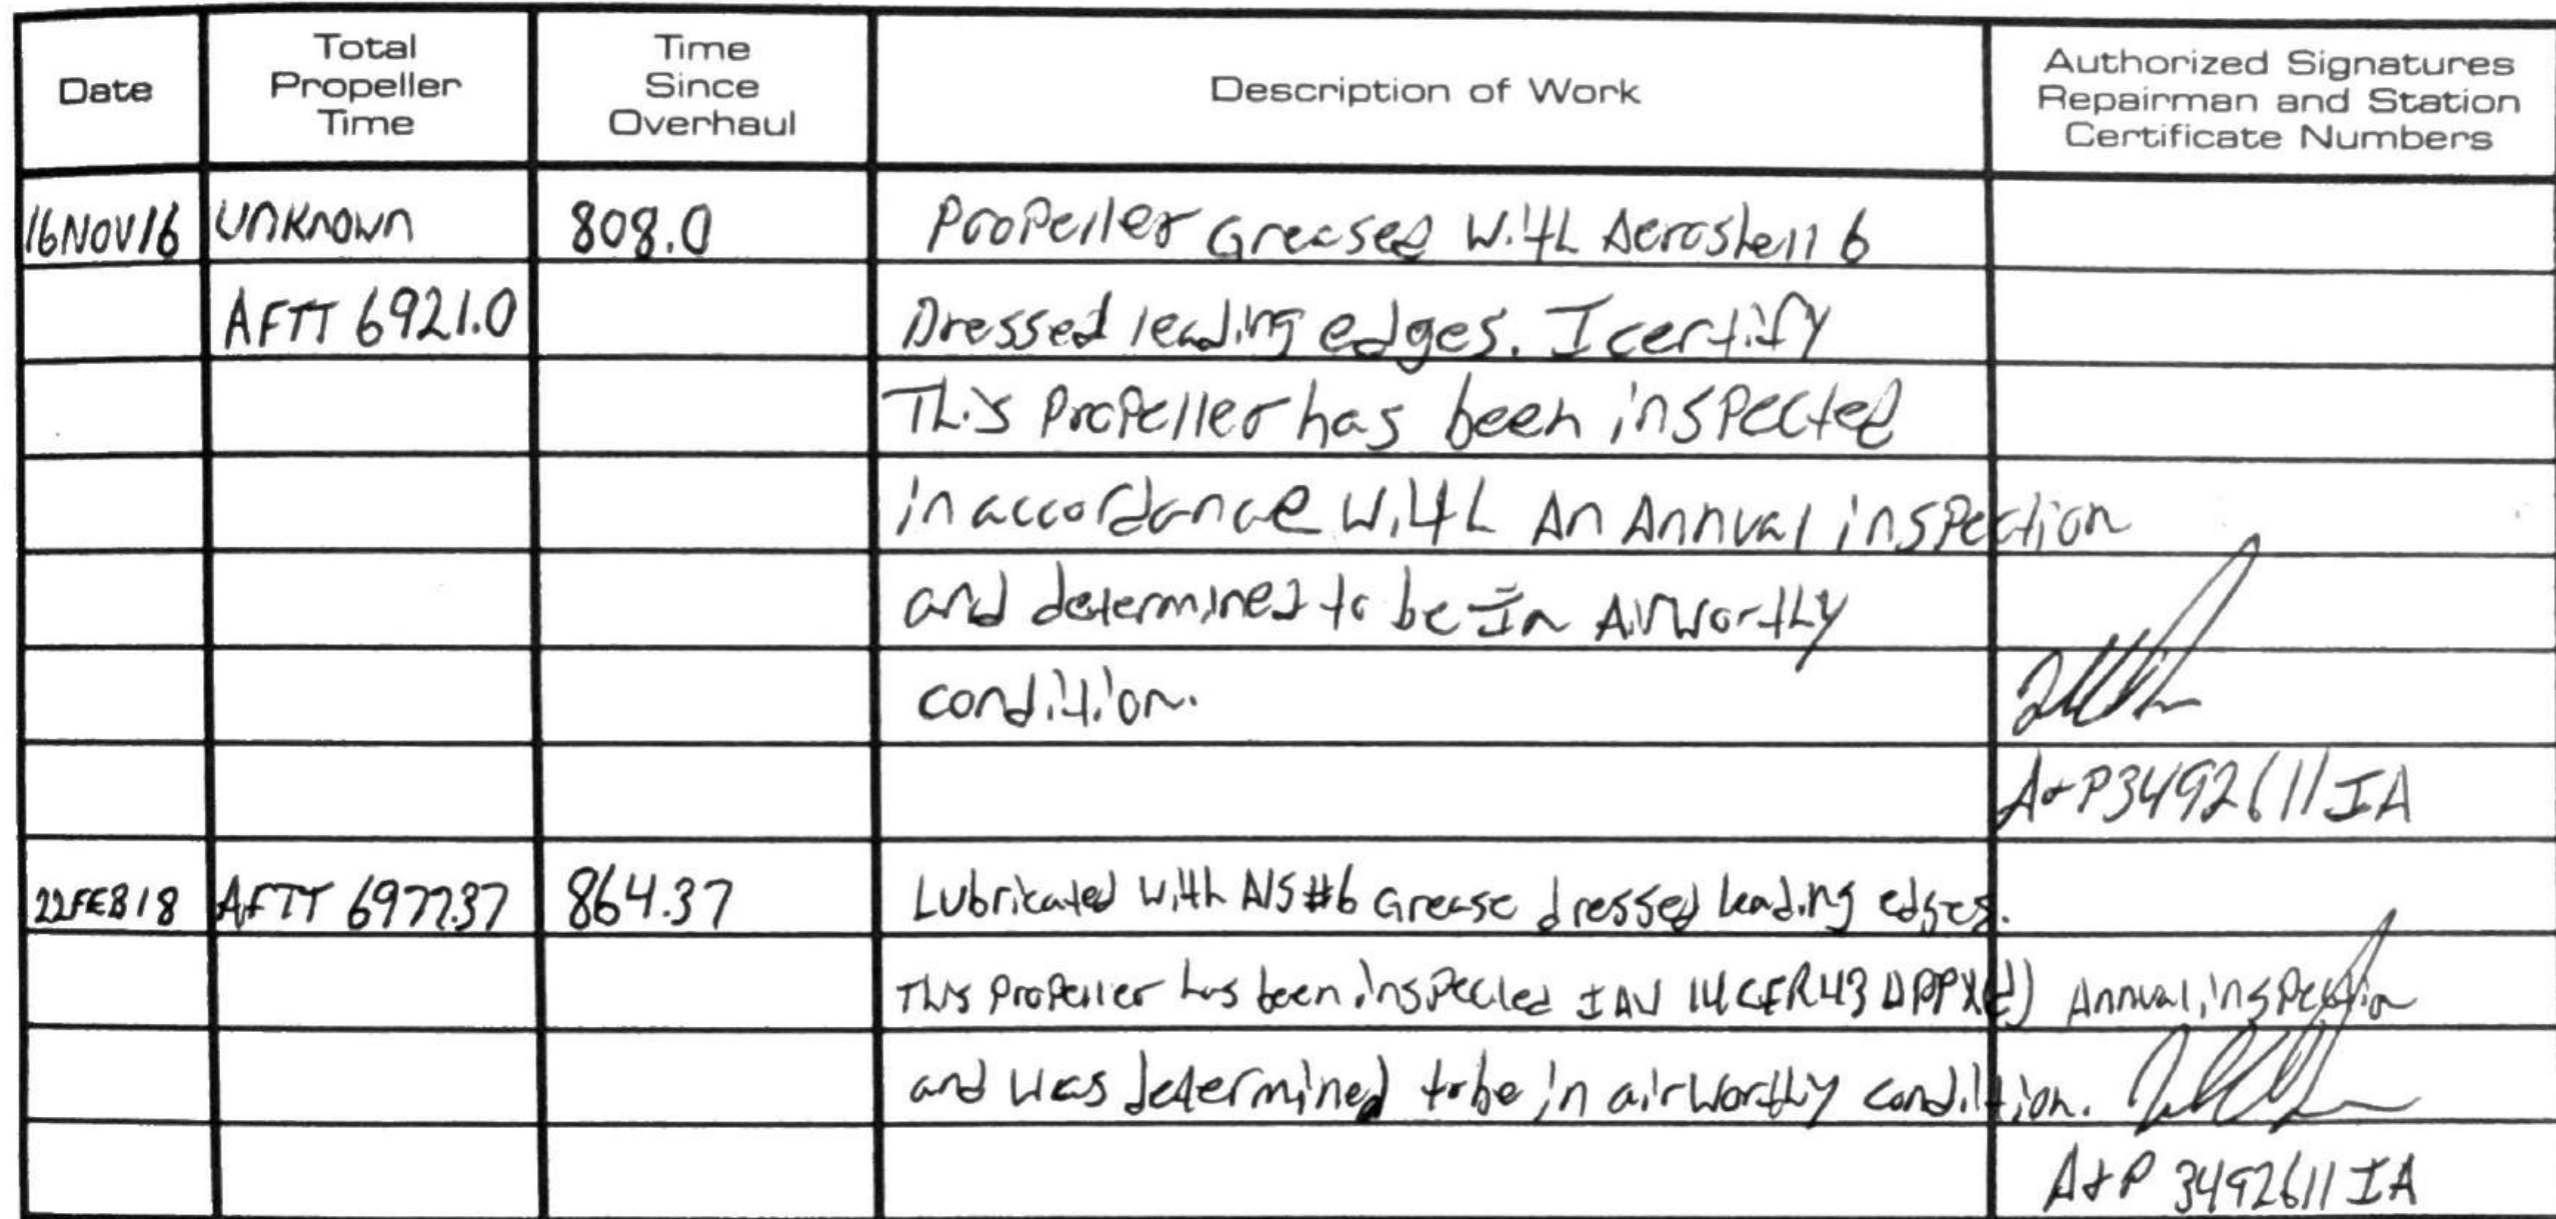 Date
Total
Propeller
Time
Time
Since
Overhaul
Description of Work
Authorized Signatures
Repairman and Station
Certificate Numbers
16NOV16 UNKNOWN 808.0 Propeller Greased With Aeroshell 6
AFTT 6921.0 Dressed leading edges. I certify
This Propeller has been inspected
in accordance With An Annual inspection
and determined to be In Airworthy
condition.
A&P3492611IA
22FEB18 AFTT 6977.37 864.37 Lubricated With A/S #6 Grease dressed leading edges.
This Propeller has been inspected IAW 14CFR43 APPX(d) Annual inspection
and was determined to be in airworthy condition.
A&P 3492611 IA